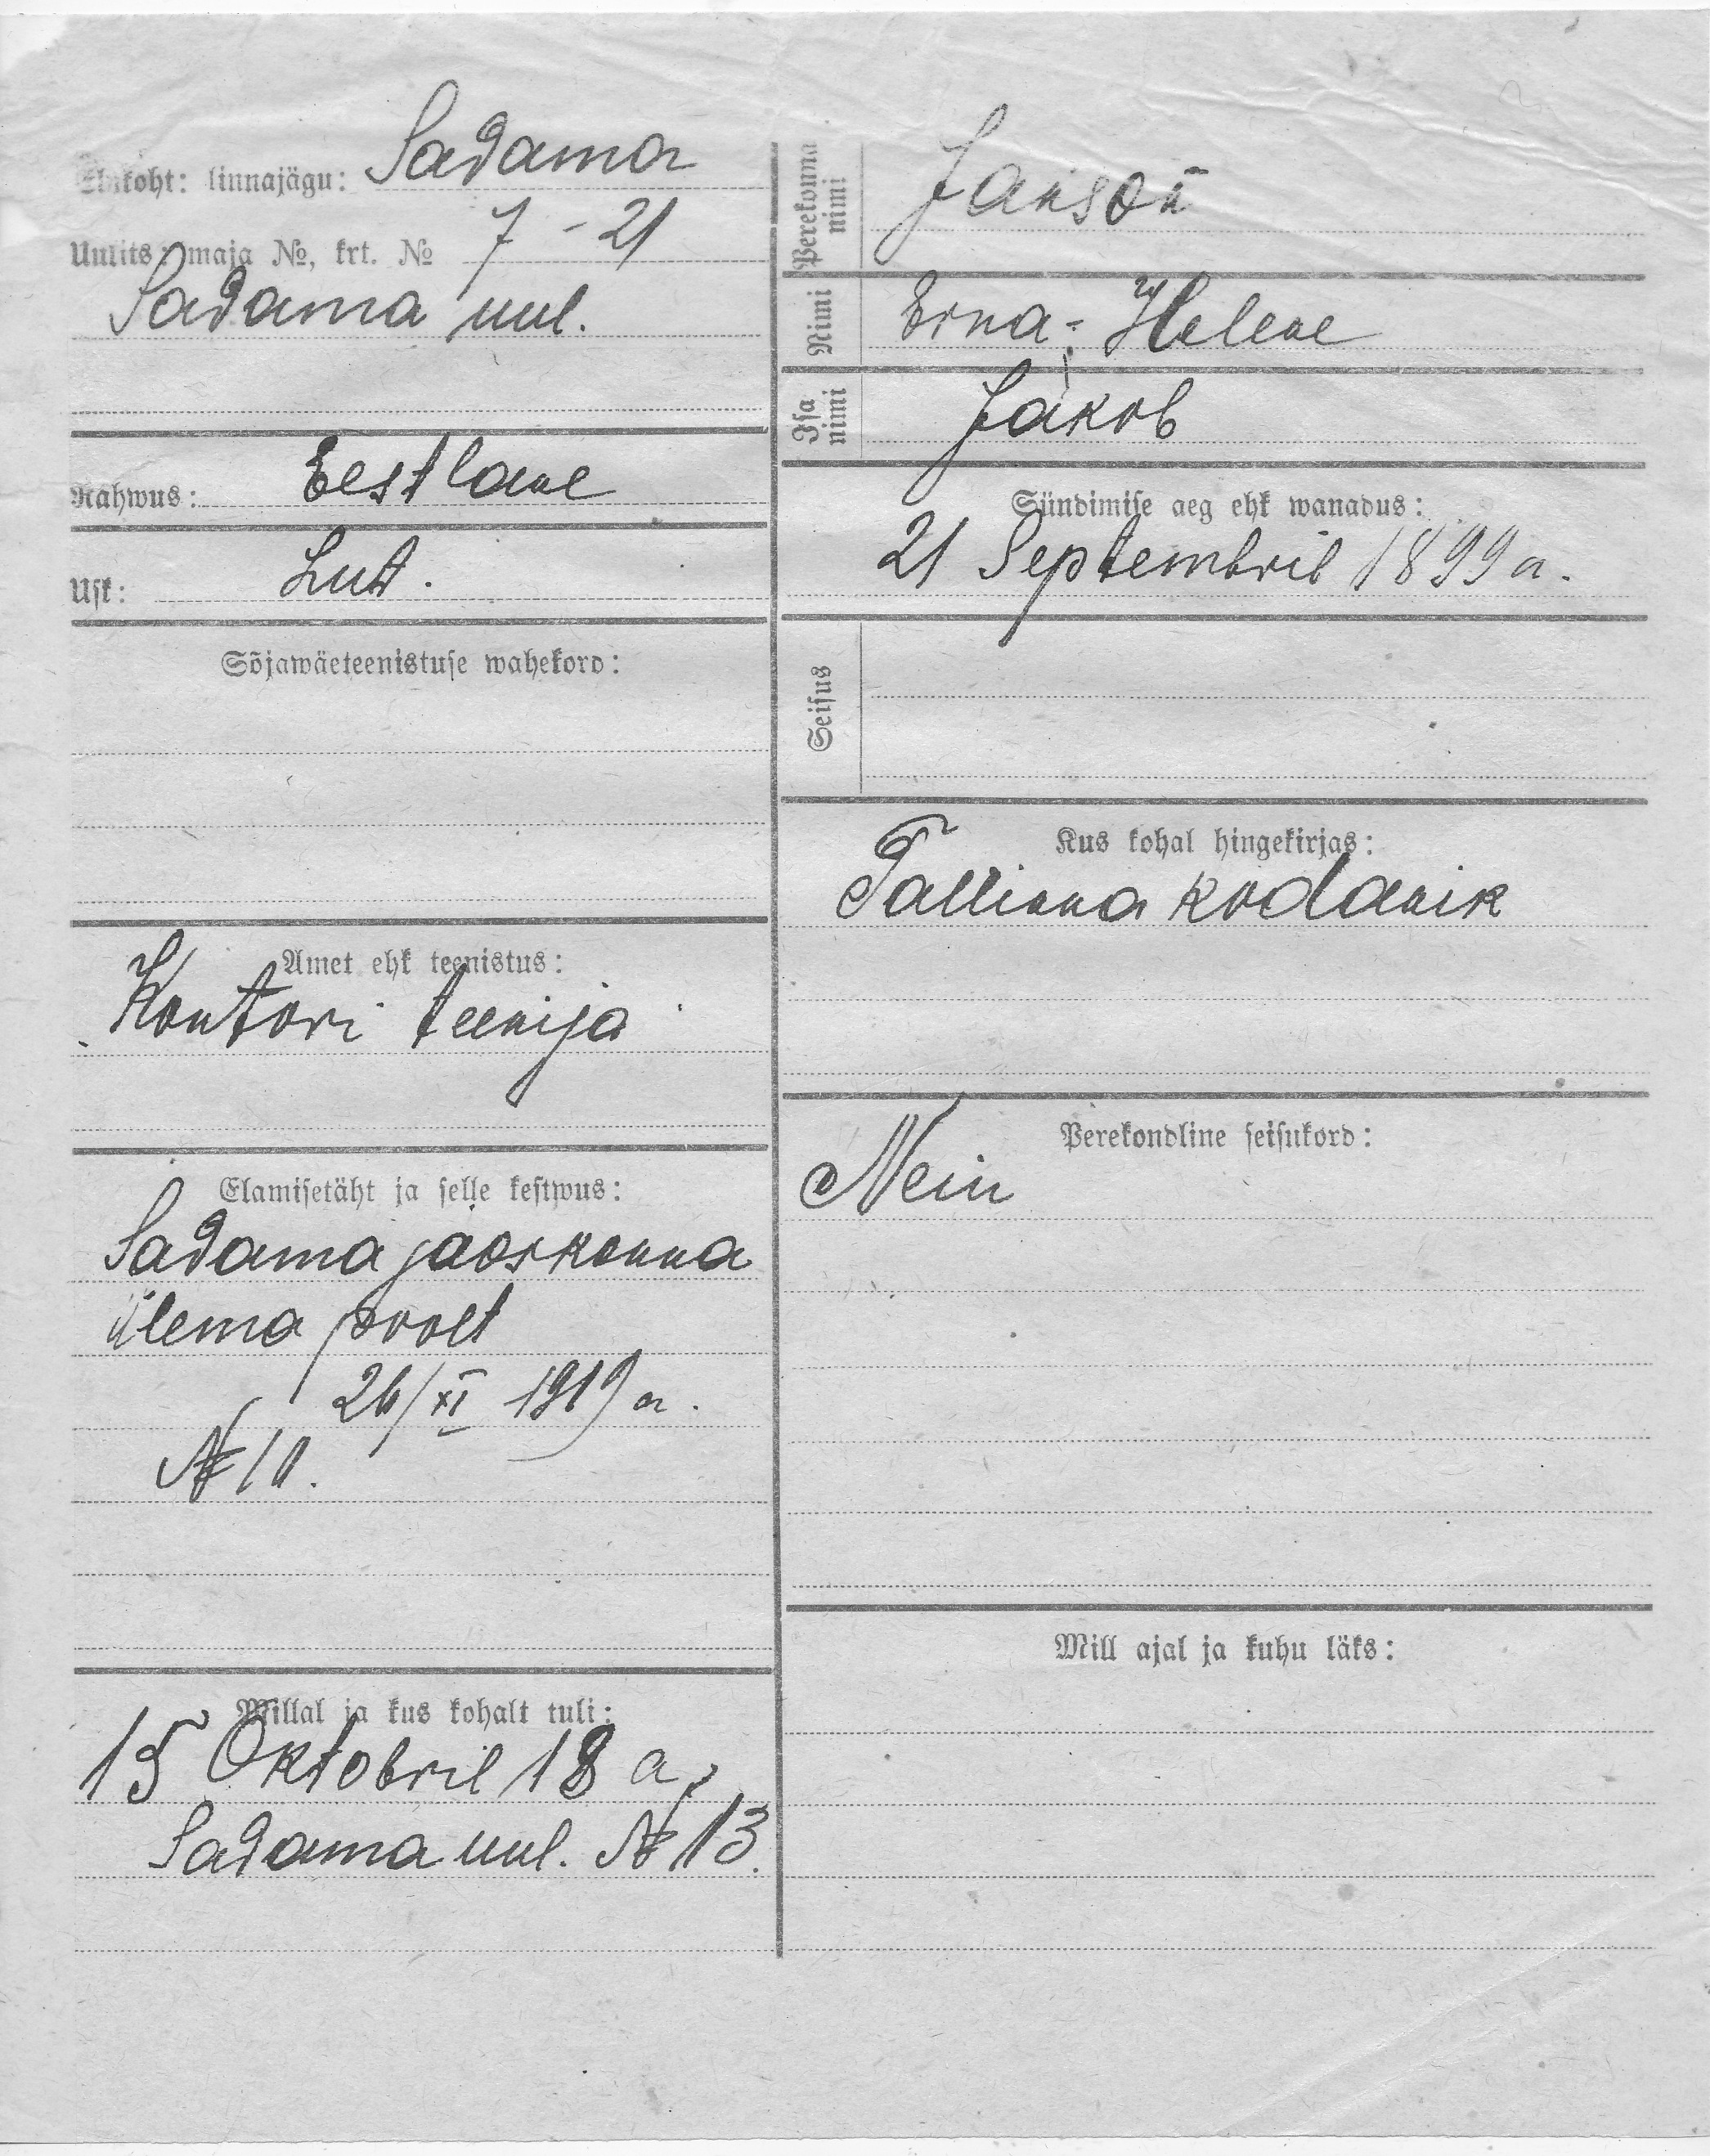 Elukoht: linnajägu: Sadama
Uulits, maja №, krt. № 7 - 21
Sadama uul.
Rahwus: Eestlane
Usk: Lut.
Sõjawäeteenistuse wahekord:
Amet ehk teenistus:
Kontori teenija
Elamisetäht ja selle kestwus:
Sadama jaoskonna
ülema poolt
26/XI 1919 a.
№ 10.
Millal ja kus kohalt tuli:
15 Oktobril 18 a.
Sadama uul. № 13.
Perekonna nimi Janson
Nimi Erna-Helene
Isa nimi Jakob
Sündimise aeg ehk wanadus:
21 Septembril 1899 a.
Seisus
Kus kohal hingekirjas:
Tallinna kodanik
Perekondline seisukord:
Nein
Mill ajal ja kuhu läks: